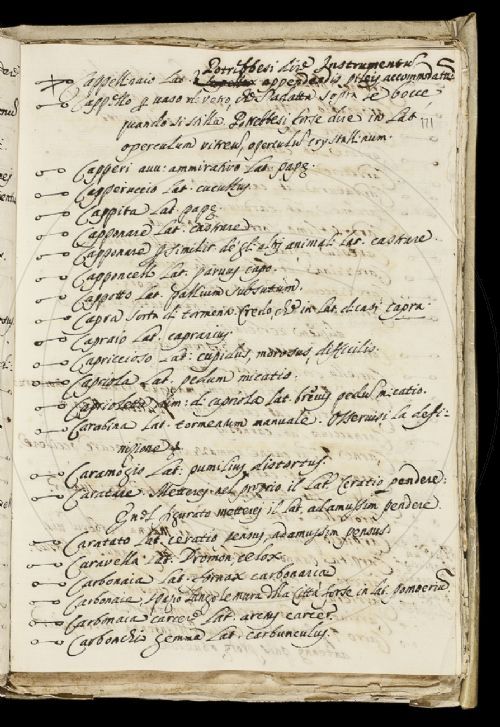 Cappellinaio Lat. Potrebbesi dire Instrumentũ
appendendis pileis accommodatũ
Cappello p vaso di vetro, che s'adatta sopra le bocce
quando si stilla Potrebbesi forse dire in Lat.
operculum vitreũ, operculũ crystallinum.
171
Capperi avv: ammirativo Lat. papę.
Capperuccio Lat. cucullus.
Cappita Lat. papę
Capponare Lat. castrare
Capponare p similit. de gl'altrj animali Lat. castrare.
Capponcello Lat. parvus capo.
Cappotto Lat. pallium subsutum.
Capra sorta di tormento. Credo che in Lat. dicasi capra.
Capraio Lat. caprarius.
Capriccioso Lat. cupidus, morosus, difficilis.
Capriola Lat. pedum micatio.
Caprioletta dim: di capriola Lat. brevis pedũ micatio.
Carabina Lat. tormentum manuale. Osservisi la deffi-
nizione
Caramogio Lat. pumilius distortus.
Caratare Metterej nel proprio il Lat. ceratio pendere:
E nel figurato metterej il Lat. adamussim pendere.
Caratato Lat. ceratio pensus, adamussim pensus.
Caravella Lat. Dromon, celox.
Carbonaia Lat. fornax carbonaria
Carbonaia spazio lungo le mura della Città forse in Lat. pomoeriũ
Carbonaia carcere Lat. arctus carcer.
Carbonchio gemma Lat. carbunculus.